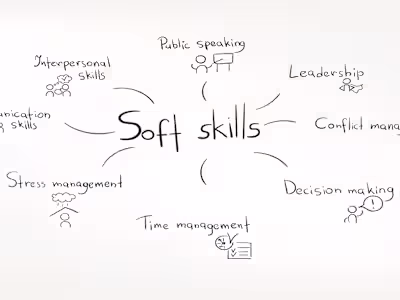 Public speaking
Interpersonal
skills
Leadership
Soft skills
skills
Conflict
Stress management
Decision making
Time management